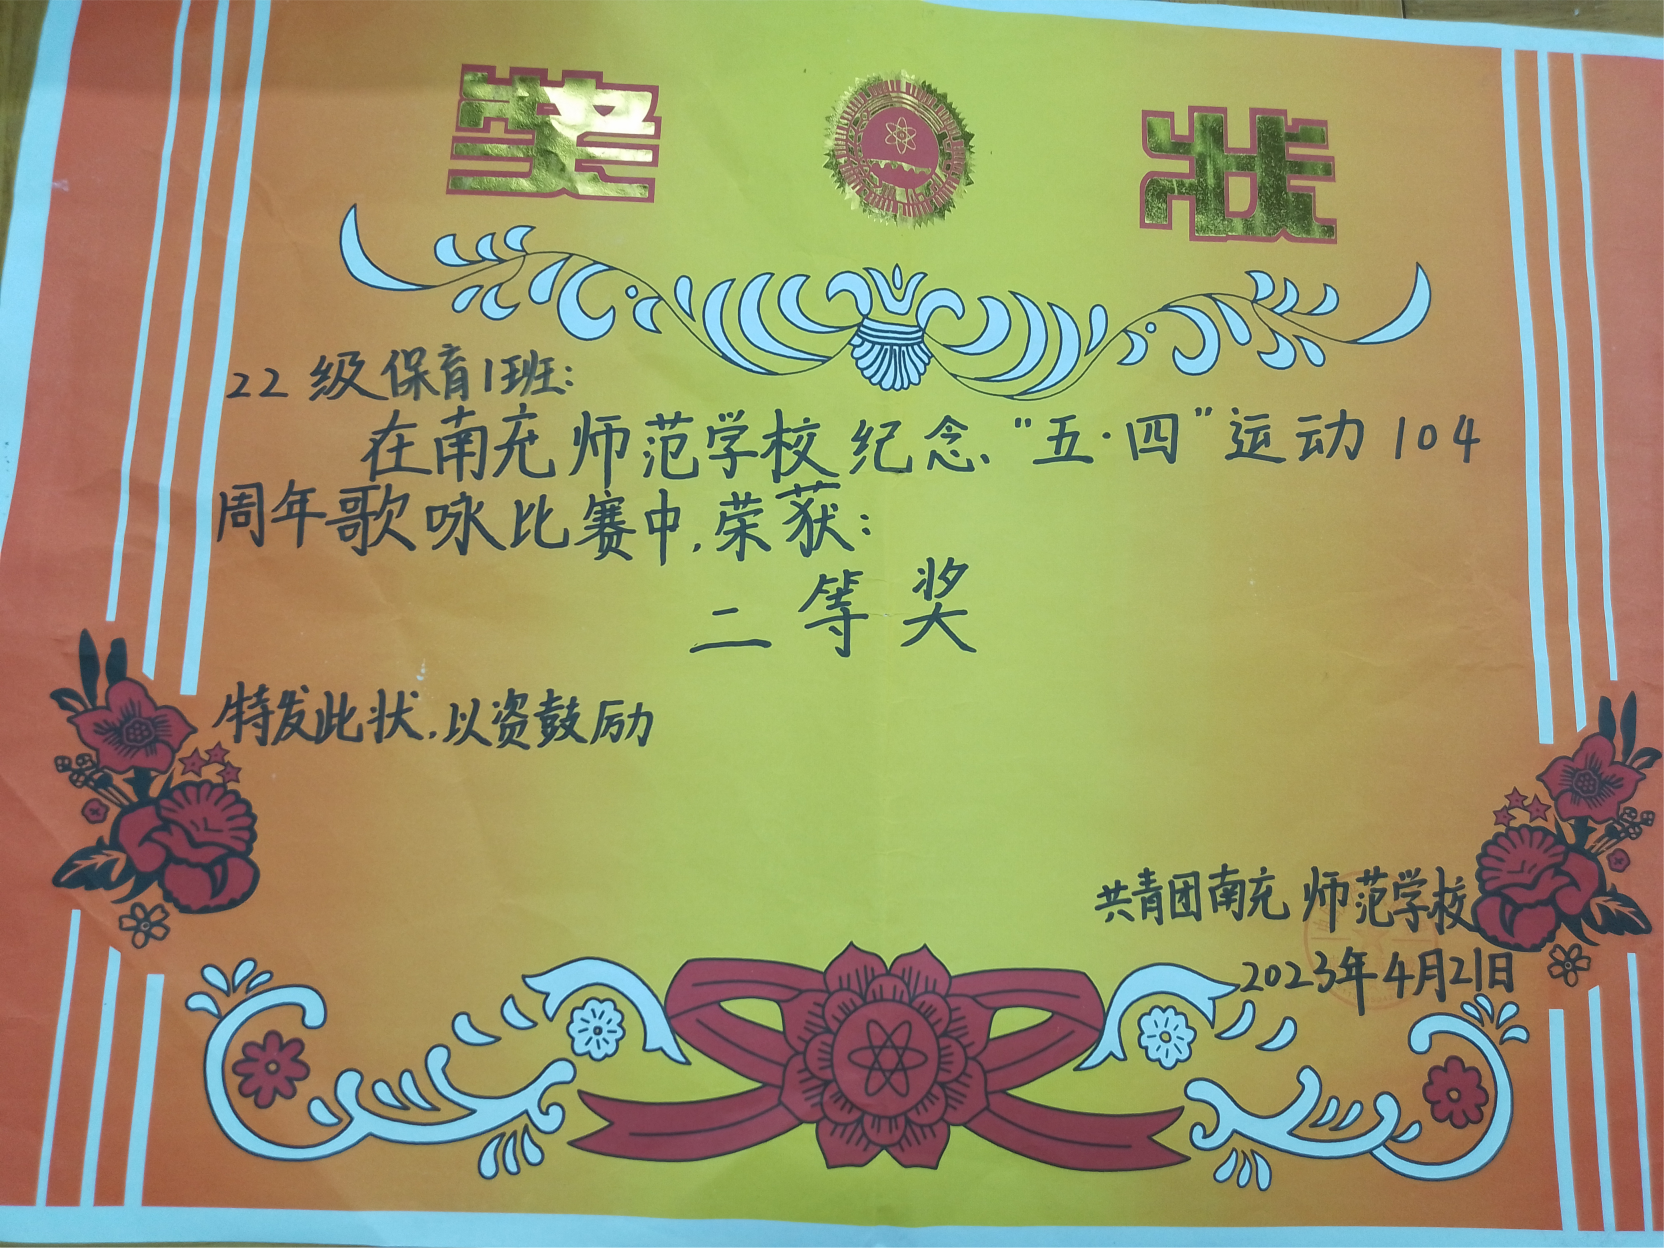 奖状
22级保育1班：
在南充师范学校纪念“五·四”运动104
周年歌咏比赛中，荣获：
二等奖
特发此状，以资鼓励
共青团南充师范学校
2023年4月21日